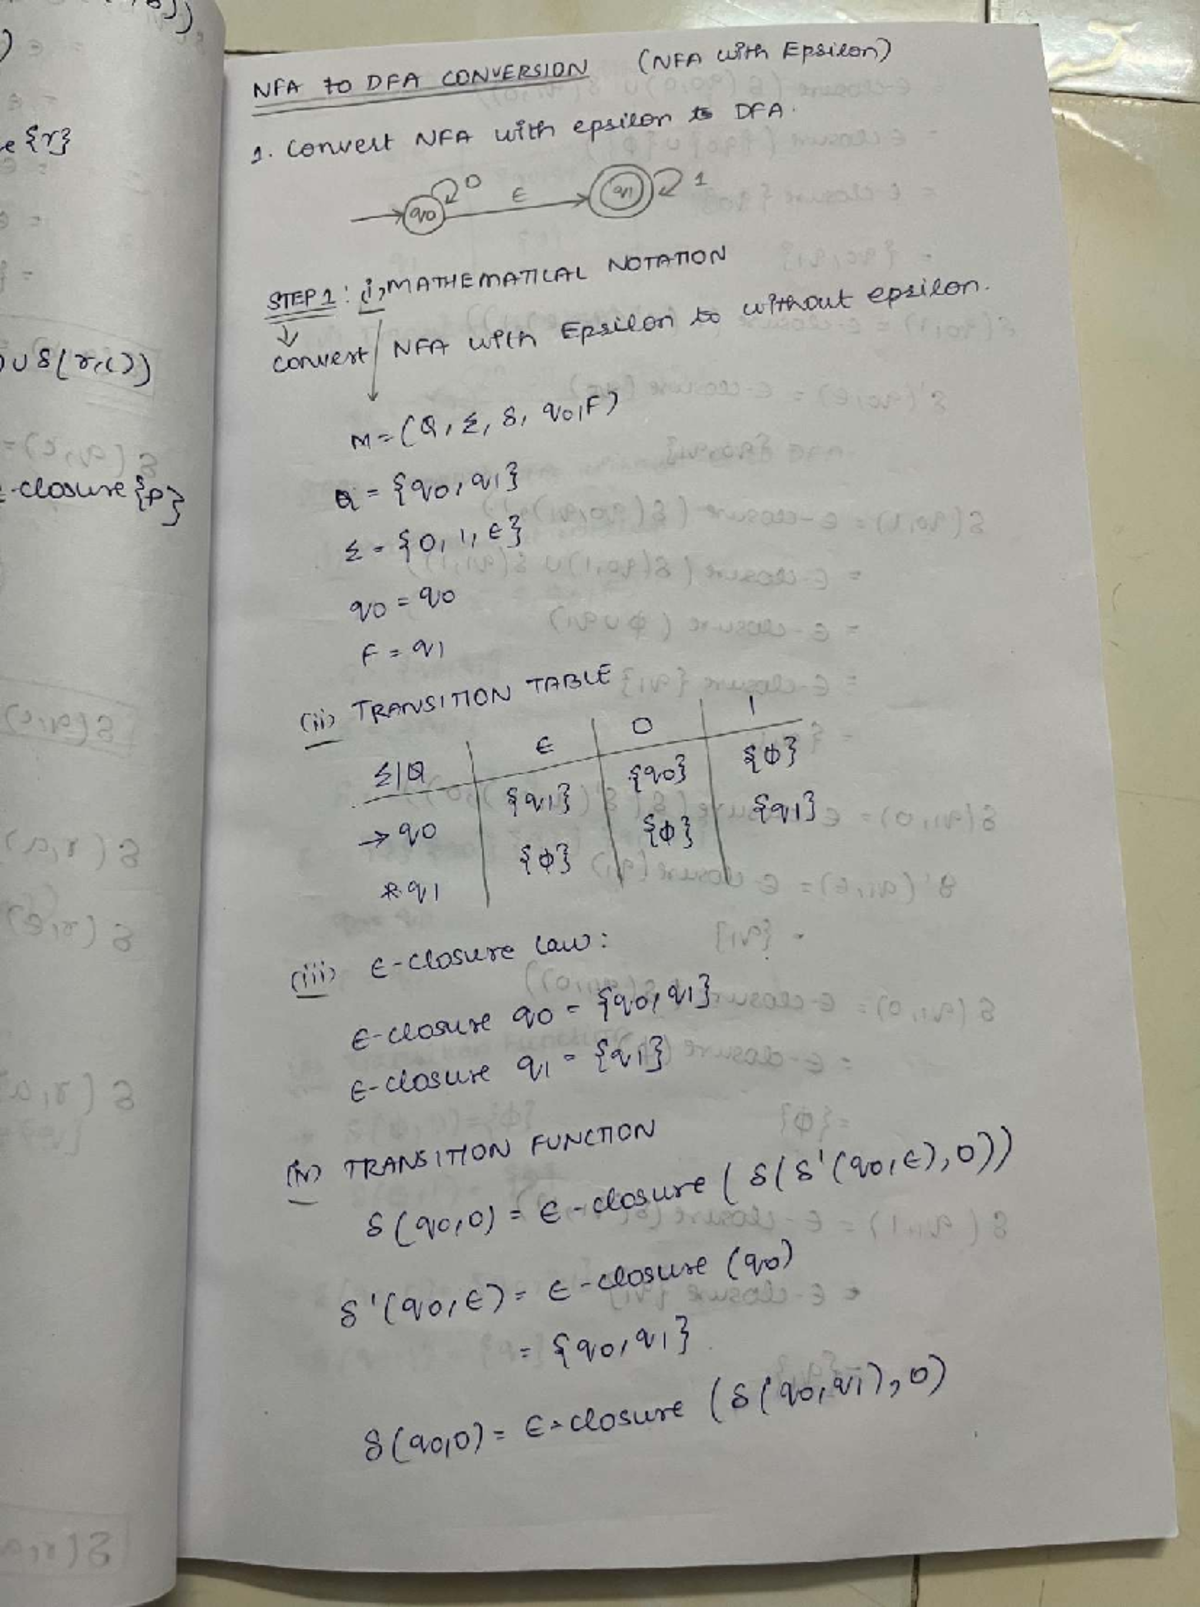 e {r}
∪ δ(r,c))
ε-closure {p}
NFA to DFA CONVERSION (NFA with Epsilon)
1. Convert NFA with epsilon to DFA.
q0 0 ε q1 1
STEP 1: i, MATHEMATICAL NOTATION
convert NFA with Epsilon to without epsilon.
M = (Q, Σ, δ, q0, F)
Q = {q0, q1}
Σ = {0, 1, ε}
q0 = q0
F = q1
(ii) TRANSITION TABLE
Σ|Q ε 0 1
→ q0 {q1} {q0} {ϕ}
* q1 {ϕ} {ϕ} {q1}
(iii) ε-closure law:
ε-closure q0 = {q0, q1}
ε-closure q1 = {q1}
(iv) TRANSITION FUNCTION
δ(q0,0) = ε-closure (δ(δ'(q0,ε),0))
δ'(q0,ε) = ε-closure (q0)
= {q0, q1}
δ(q0,0) = ε-closure (δ(q0,q1),0)